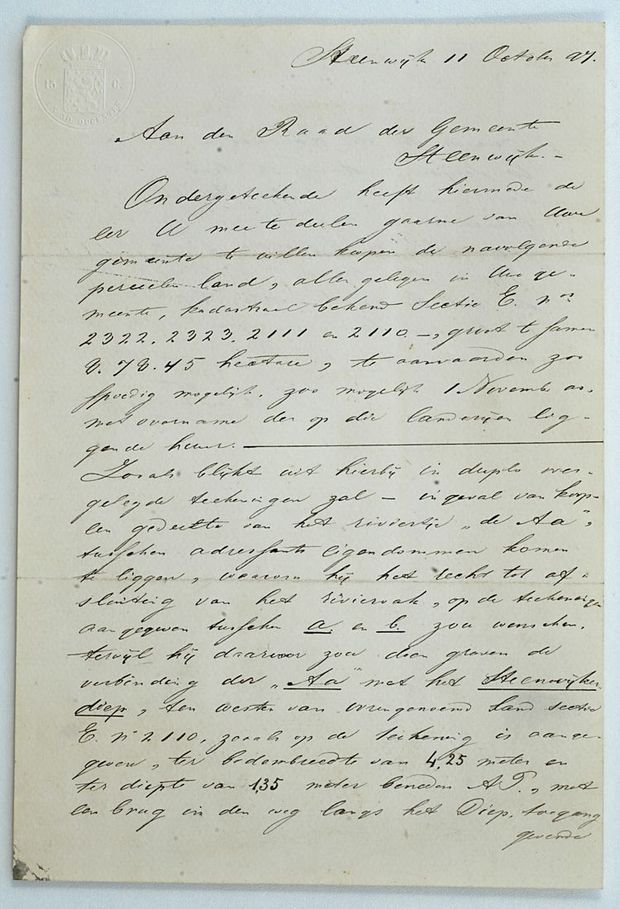 Steenwijk 11 October 97.
Aan den Raad der Gemeente
Steenwijk.-
Ondergeteekende heeft hiermede de
eer U mee te deelen gaarne van Uwe
gemeente te willen koopen de navolgende
perceelen land, allen gelegen in Uw ge-
meente, kadastraal bekend Sectie E. nos
2322. 2323. 2111 en 2110 -, groot te samen
8. 78. 45 hectare, te aanvaarden zoo
spoedig mogelijk, zoo mogelijk 1 November as.
met overname der op die landerijen lig-
gende huur.
Zooals blijkt uit hierbij in duplo over-
gelegde teekeningen zal - in geval van koop-
een gedeelte van het riviertje "de Aa",
tusschen adressants eigendommen komen
te liggen, waarom hij het recht tot af-
sluiting van het riviervak, op de teekeningen
aangegeven tusschen a. en b. zou wenschen,
terwijl hij daarvoor zou doen graven de
verbinding der "Aa" met het Steenwijker
diep, ten westen van voornoemd land sectie
E. no 2110, zooals op de teekening is aange-
geven, ter bodembreedte van 4,25 meter en
ter diepte van 1,35 meter beneden A.P., met
een brug in den weg langs het Diep, toegang
gevende